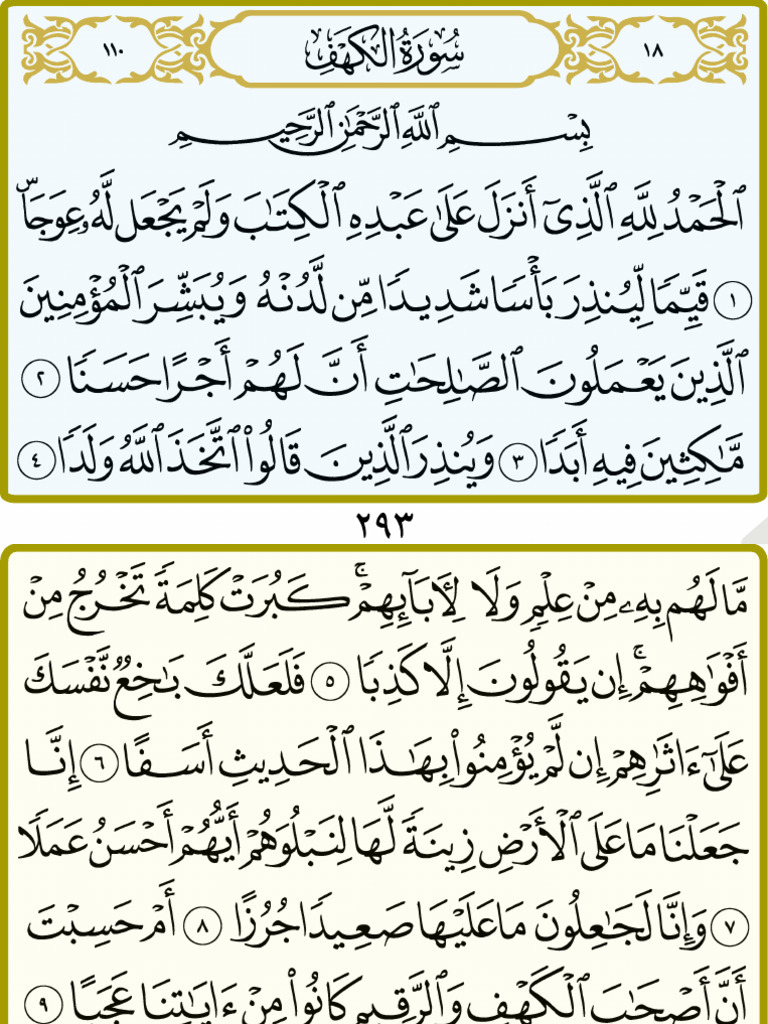 ١٨ سُورَةُ الكَهۡفِ ١١٠
بِسۡمِ ٱللَّهِ ٱلرَّحۡمَٰنِ ٱلرَّحِيمِ
ٱلۡحَمۡدُ لِلَّهِ ٱلَّذِيٓ أَنزَلَ عَلَىٰ عَبۡدِهِ ٱلۡكِتَٰبَ وَلَمۡ يَجۡعَل لَّهُۥ عِوَجَاۜ
١ قَيِّمٗا لِّيُنذِرَ بَأۡسٗا شَدِيدٗا مِّن لَّدُنۡهُ وَيُبَشِّرَ ٱلۡمُؤۡمِنِينَ
ٱلَّذِينَ يَعۡمَلُونَ ٱلصَّٰلِحَٰتِ أَنَّ لَهُمۡ أَجۡرًا حَسَنٗا ٢
مَّٰكِثِينَ فِيهِ أَبَدٗا ٣ وَيُنذِرَ ٱلَّذِينَ قَالُواْ ٱتَّخَذَ ٱللَّهُ وَلَدٗا ٤
٢٩٣
مَّا لَهُم بِهِۦ مِنۡ عِلۡمٖ وَلَا لِأٓبَآئِهِمۡۚ كَبُرَتۡ كَلِمَةٗ تَخۡرُجُ مِنۡ
أَفۡوَٰهِهِمۡۚ إِن يَقُولُونَ إِلَّا كَذِبٗا ٥ فَلَعَلَّكَ بَٰخِعٞ نَّفۡسَكَ
عَلَىٰٓ ءَاثَٰرِهِمۡ إِن لَّمۡ يُؤۡمِنُواْ بِهَٰذَا ٱلۡحَدِيثِ أَسَفًا ٦ إِنَّا
جَعَلۡنَا مَا عَلَى ٱلۡأَرۡضِ زِينَةٗ لَّهَا لِنَبۡلُوَهُمۡ أَيُّهُمۡ أَحۡسَنُ عَمَلٗا
٧ وَإِنَّا لَجَٰعِلُونَ مَا عَلَيۡهَا صَعِيدٗا جُرُزًا ٨ أَمۡ حَسِبۡتَ
أَنَّ أَصۡحَٰبَ ٱلۡكَهۡفِ وَٱلرَّقِيمِ كَانُواْ مِنۡ ءَايَٰتِنَا عَجَبًا ٩